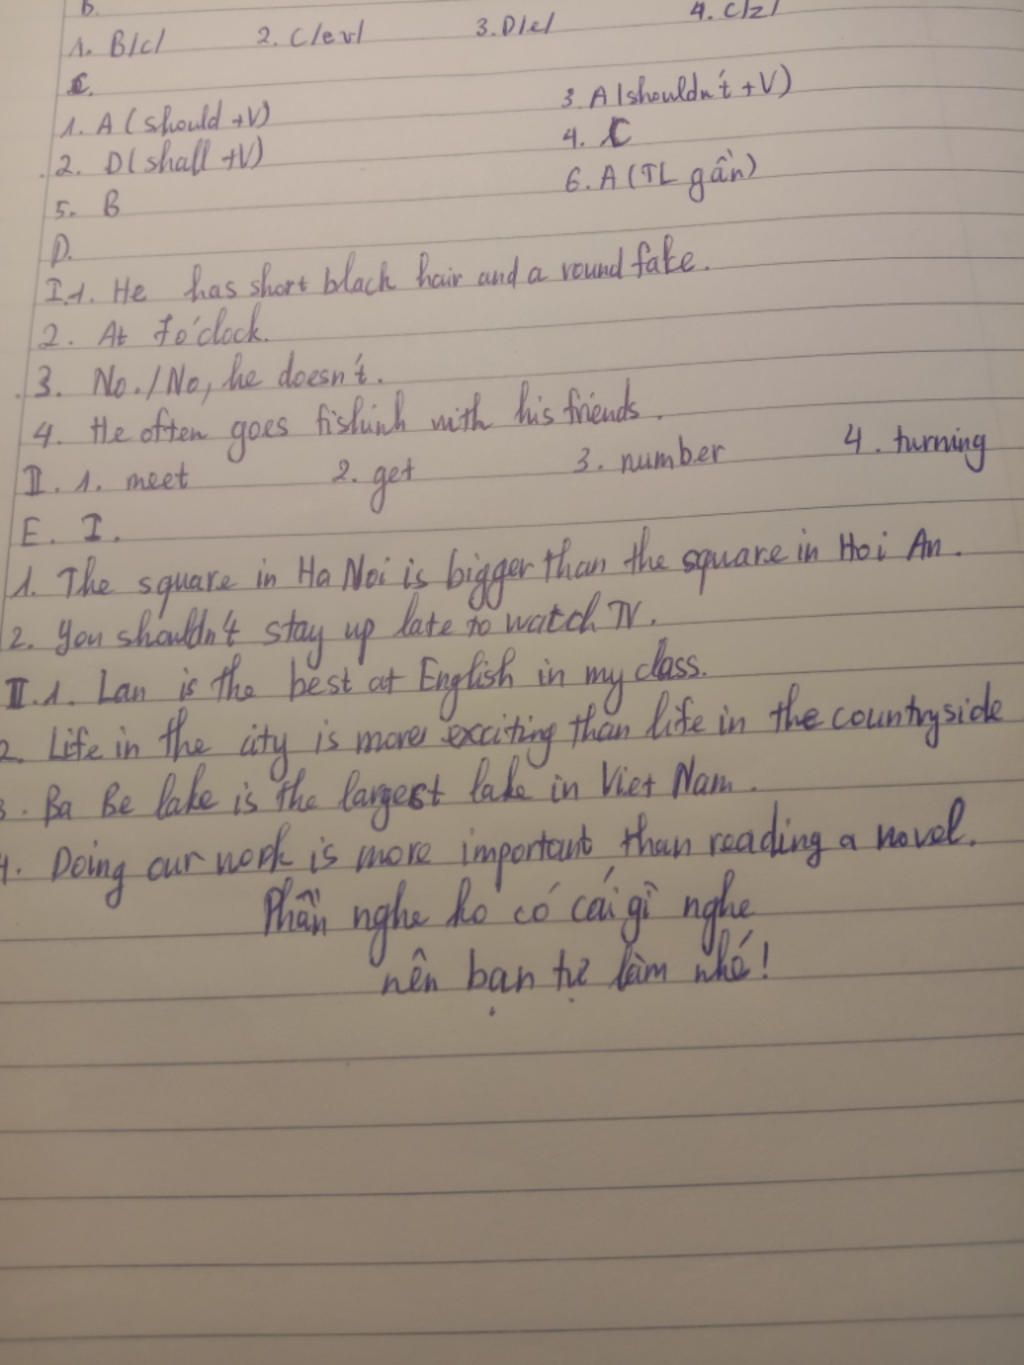 B.
1. B/c/ 2. C/ev/ 3. D/e/ 4. C/z/
C.
1. A (should +V) 3. A (shouldn't +V)
2. D (shall +V) 4. C
5. B 6. A (TL gần)
D.
I.1. He has short black hair and a round fake.
2. At 7 o'clock.
3. No. / No, he doesn't.
4. He often goes fishinh with his friends.
II. 1. meet 2. get 3. number 4. turning
E. I.
1. The square in Ha Noi is bigger than the square in Hoi An.
2. You shouldn't stay up late to watch TV.
II.1. Lan is the best at English in my class.
2. Life in the city is more exciting than life in the countryside
3. Ba Be lake is the largest lake in Viet Nam.
4. Doing our work is more important than reading a novel.
Phần nghe ko có cái gì nghe
nên bạn tự làm nhé!